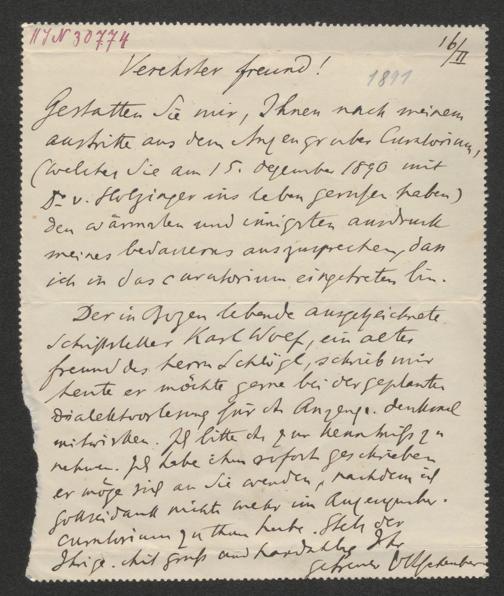 HJN 30774
16/II
Verehrter freund!
1891
Gestatten Sie mir, Ihnen nach meinem
austritte aus dem Anzengruber Curatorium,
(welches Sie am 15. dezember 1890 mit
Dr v. Holzinger ins leben gerufen haben)
den wärmsten und innigsten ausdruck
meines bedauerns auszusprechen, dass
ich in das curatorium eingetreten bin.
Der in Bozen lebende ausgezeichnete
Schriftsteller Karl Wolf, ein altes
freund des herrn Schlögl, schrieb mir
heute er möchte gerne bei der geplanten
Dialektvorlesung für das Anzengr. denkmal
mitwirken. Ich bitte das zur kenntniß zu
nehmen. Ich habe ihm sofort geschrieben
er möge sich an Sie wenden, nachdem ich
gottseidank nichts mehr im Anzengruber.
Curatorium zu thun habe. Stets der
Ihrige. Mit gruß und handschlag Ihr
getreuer